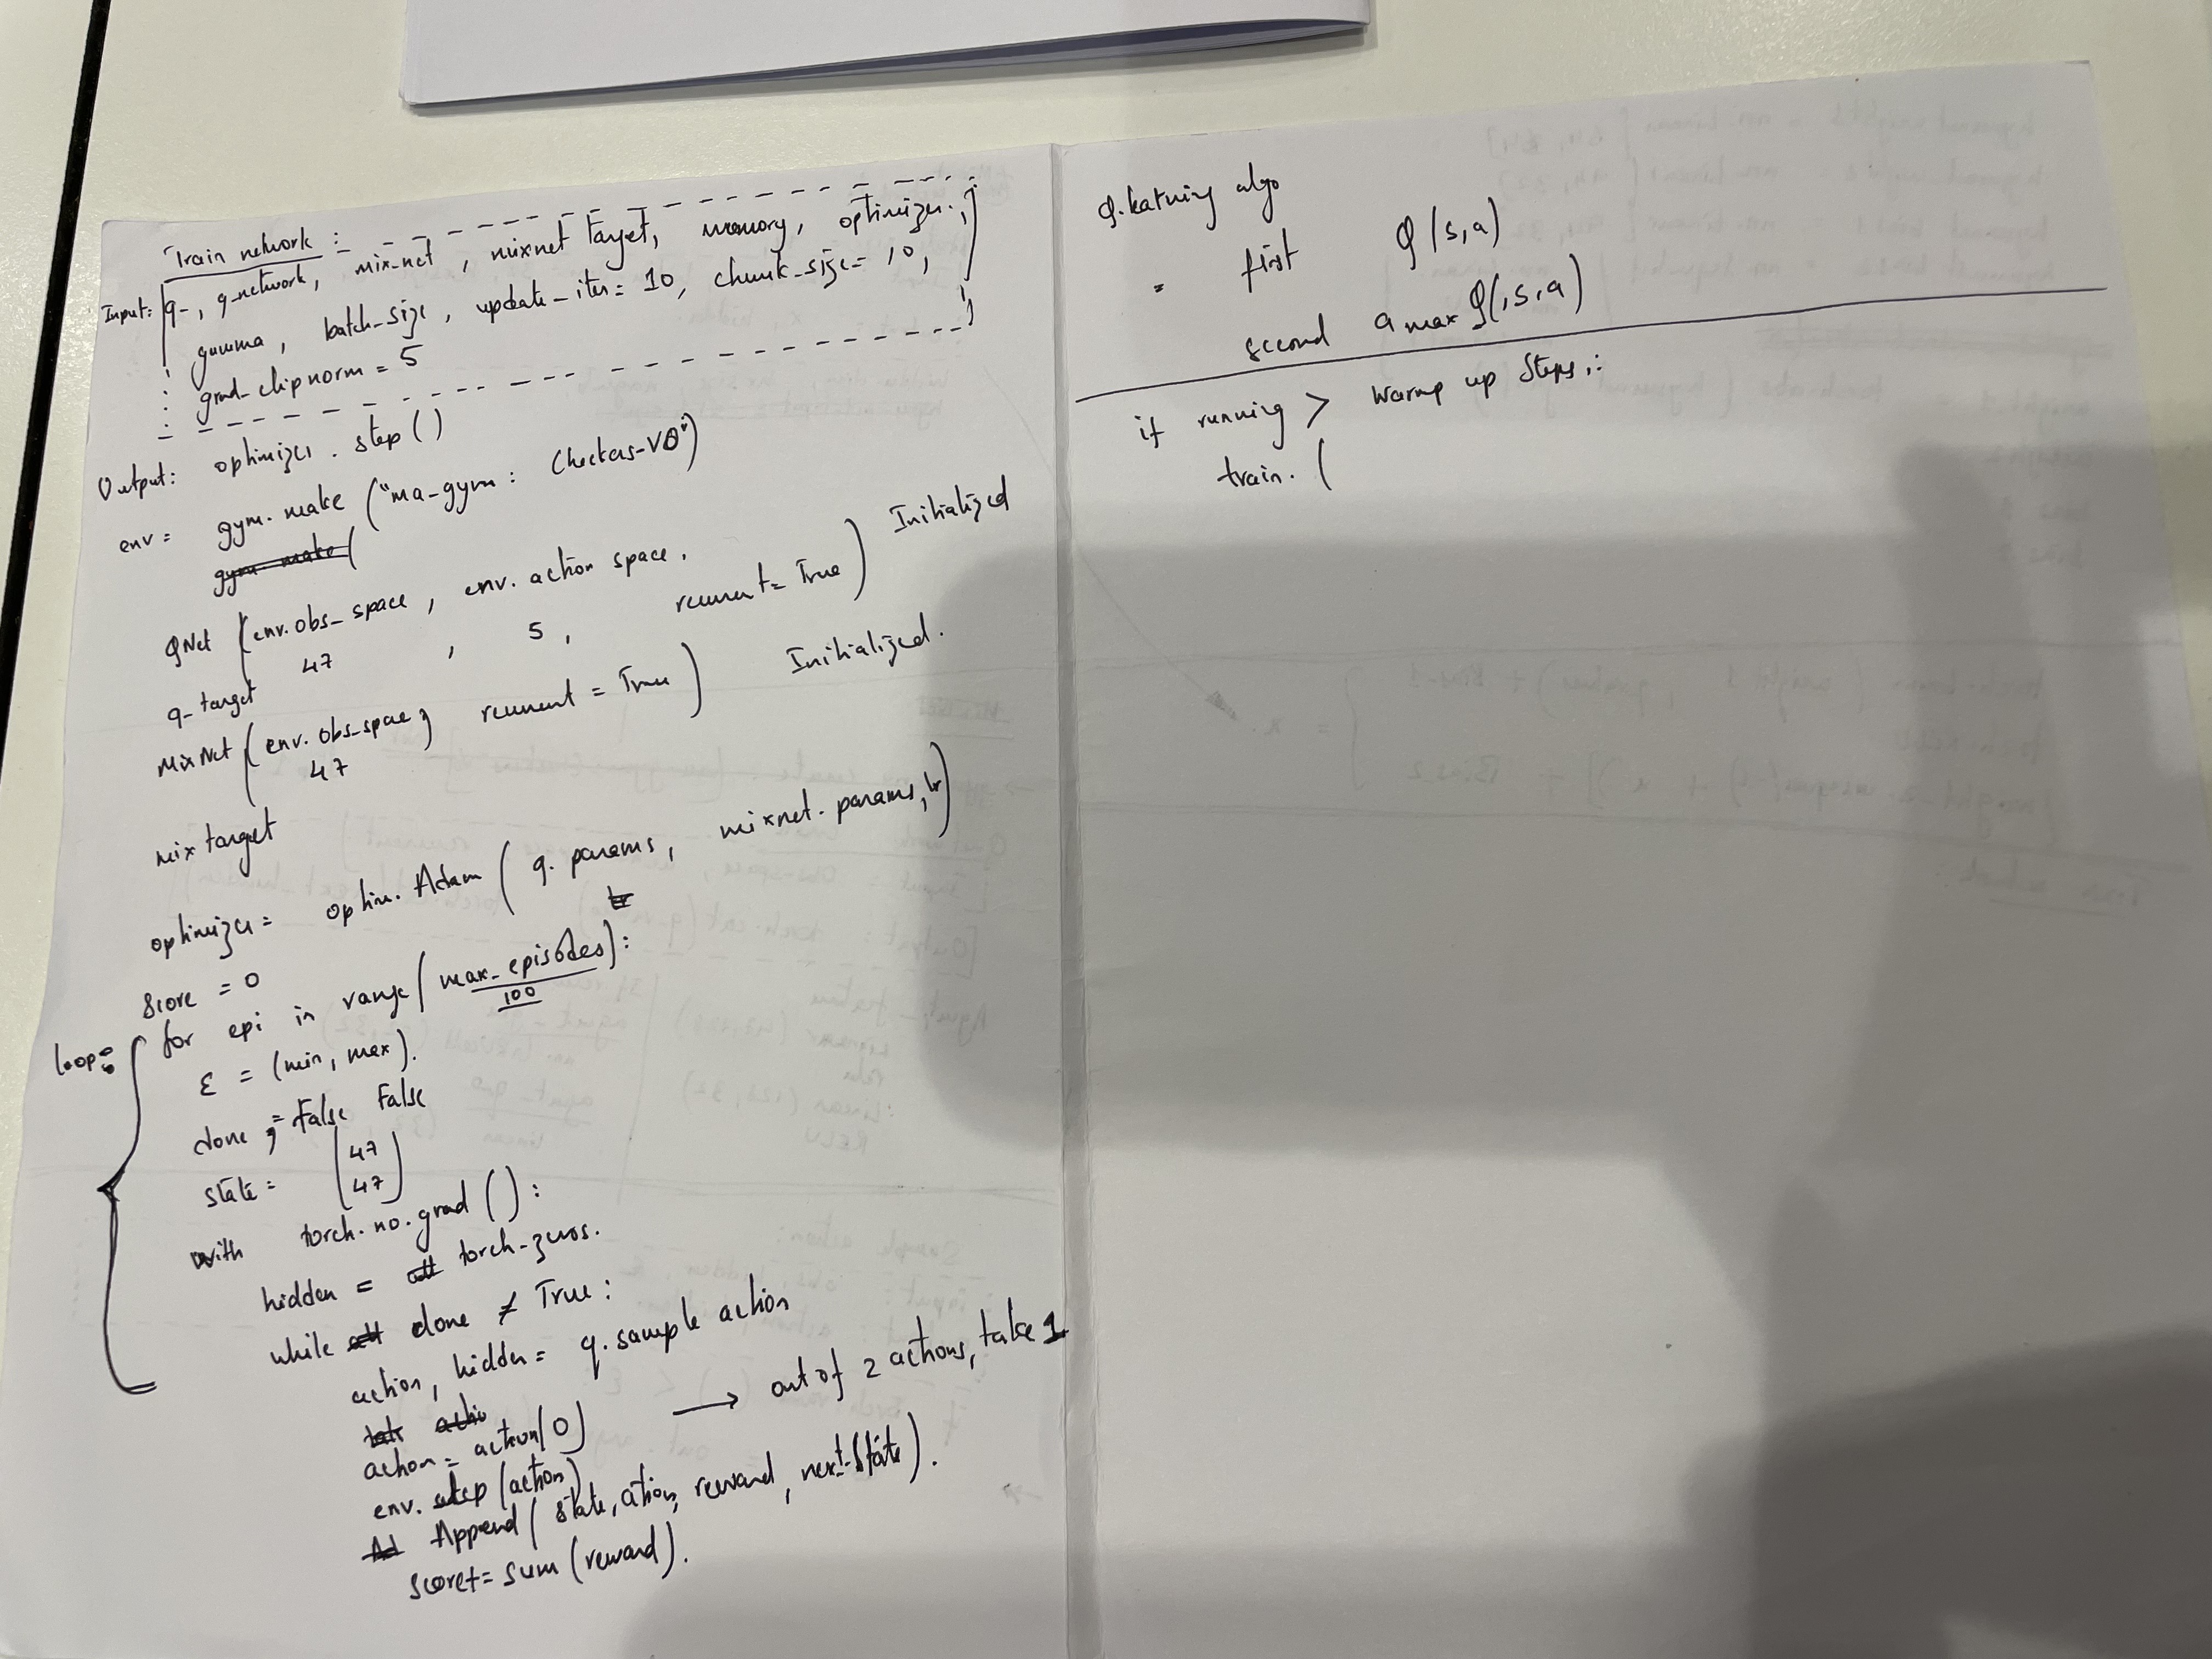 Train network :
Input: q-, q-network, mix-net, mixnet target, memory, optimizer,
gamma, batch_size, update_iter = 10, chunk_size = 10,
grad_clipnorm = 5
Output: optimizer . step ()
env = gym. make ("ma-gym : Checkers-V0")
gym. make (
QNet (env.obs_space, env. action space, recurrent = True) Initialized
47 , 5 ,
q-target
MixNet (env. obs_space, recurrent = True) Initialized.
47
mix target
optimizer = optim. Adam ( q. params, mixnet. params, lr)
lr
score = 0
loop: for epi in range (max_episodes):
100
ε = (min, max).
done = False False
state = (47
47)
with torch. no. grad () :
hidden = torch-zeros.
while done ≠ True :
action, hidden = q. sample action
action = action[0] → out of 2 actions, take 1
env. step (action)
Append (state, ation, reward, next-state).
score+= sum (reward).
Q.learning algo
first Q (s,a)
second a max Q(,s,a)
if running > warm up steps,:
train. (